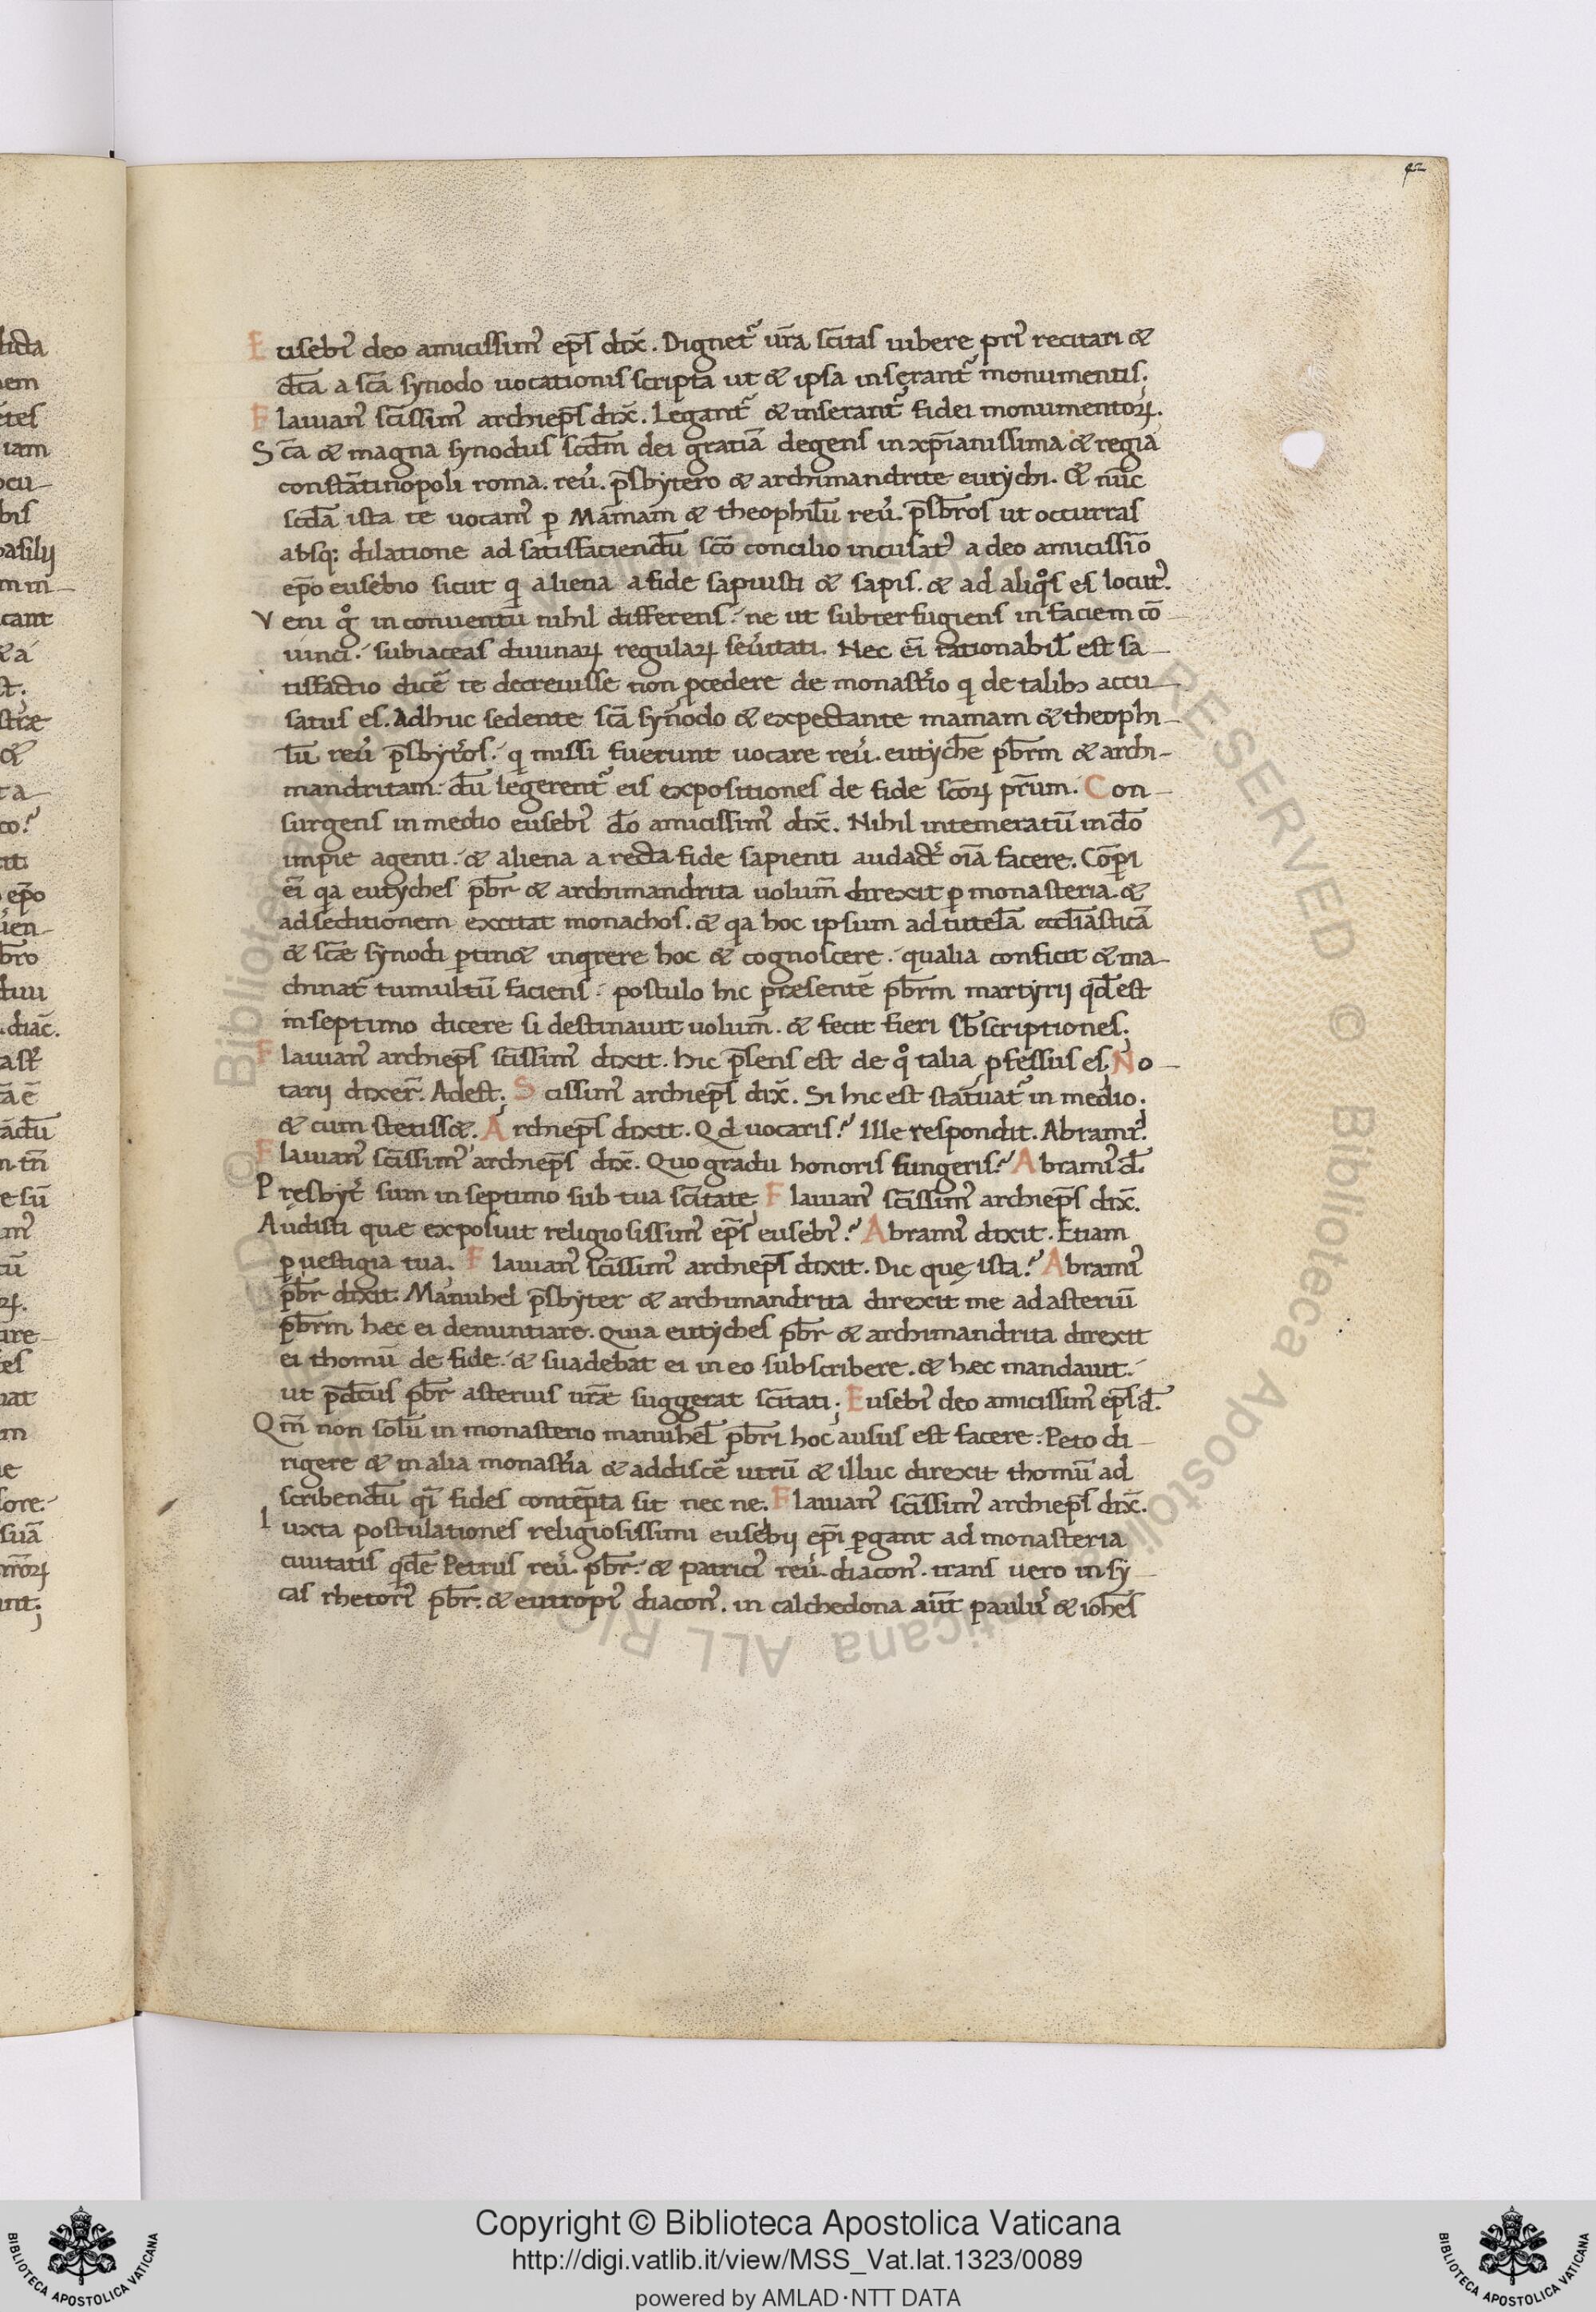 42
Eusebi᾽ deo amicissim᾽ ep̄s dix̄. Dignet᾽ ur̄a sc̄itas iubere pri᾽ recitari &
dc̄a a sc̄a synodo uocationis scripta ut & ipsa inserant᾽ monumentis.
Flauian᾽ sc̄issim᾽ archiep̄s dix̄. Legant᾽ & inserant᾽ fidei monumentoꝝ.
Sc̄a & magna synodus scd̄m dei gratiā degens in xp̄ianissima & regia
constātinopoli roma. reu᾽. p̄sbytero & archimandrite eutychi. & nūc
scd̄a ista te uocam᾽ ꝑ Mamam & theophilū reu᾽. p̄sbr̄os ut occurras
absq; dilatione ad satisfaciendū sc̄o concilio incusat᾽ a deo amicissīo
ep̄o eusebio sicut q aliena a fide sapuisti & sapis. & ad aliqͦs es locut᾽.
Veni gͦ in conuentū nihil differens. ne ut subterfugiens in faciem cō
uinci. subiaceas diuinaꝝ regulaꝝ seu᾽itati. Nec ei᾽ rationabil̄ est sa-
tisfactio dicē te decreuisse non ꝓcedere de monastio q de talibꝫ accu-
satus es. Adhuc sedente sc̄a synodo & expectante mamam & theophi-
lū reu᾽ p̄sbyt᾽os. q missi fuerunt uocare reu᾽. eutychē pb̄rm & archi-
mandritam. dū legerent᾽ eis expositiones de fide sc̄oꝝ pr̄um. Con-
surgens in medio eusebi᾽ dō amicissim᾽ dix̄. Nihil intemeratū in dō
impie agenti. & aliena a recta fide sapienti audact᾽ oīa facere. Cōpi
ei᾽ qa eutyches pb̄r & archimandrita uolum̄ direxit ꝑ monasteria. &
ad seditionem excitat monachos. & qa hoc ipsum ad tutelā eccl̄iasticā
& sc̄æ synodi ꝑtin& inqrere hoc & cognoscere. qualia conficit & ma-
chinat᾽ tumultū faciens. postulo hic presentē pb̄rm martyrij qd̄ est
in septimo dicere si destinauit uolum̄. & fecit fieri sb̄scriptiones.
Flauian᾽ archiep̄s sc̄issim᾽ dixit. hic p̄sens est de qͦ talia ꝓfessus es. No-
tarij dixer̄. Adest. Scissim᾽ archiep̄s dix̄. Si hic est statuat᾽ in medio.
& cum stetiss&. Archiep̄s dixit. Qd uocaris? Ille respondit. Abrami᾽.
Flauian᾽ sc̄issim᾽ archiep̄s dix̄. Quo gradu honoris fungeris? Abrami᾽ d̄.
Presbyt᾽ sum in septimo sub tua sc̄itate. Flauian᾽ sc̄issim᾽ archiep̄s dix̄.
Audisti quæ exposuit religiosissim᾽ ep̄s eusebi᾽? Abrami᾽ dixit. Etiam
ꝑ uestigia tua. Flauian᾽ sc̄issim᾽ archiep̄s dixit. Dic quę ista? Abrami᾽
pb̄r dixit. Manuhel p̄sbyter & archimandrita direxit me ad asteriū
pb̄rm hæc ei denuntiare. Quia eutyches pb̄r & archimandrita direxit
ei thomū de fide. & suadebat ei in eo subscribere. & hæc mandauit.
ut p̄dc̄us pb̄r asterius ur̄æ suggerat sc̄itati. Eusebi᾽ deo amicissim᾽ ep̄s d̄.
Qm̄ non solū in monasterio manuhel̄ pb̄ri hoc ausus est facere. Peto di-
rigere & in alia monastia & addiscē utrū & illuc direxit thomū ad
scribendū qi᾽ fides contēpta sit nec ne. Flauian᾽ sc̄issim᾽ archiep̄s dix̄.
Iuxta postulationes religiosissimi eusebij ep̄i ꝑgant ad monasteria
ciuitatis qdē Petrus reu᾽. pb̄r. & patrici᾽ reu᾽. diacon᾽. trans uero in sy-
cas rhetori᾽ pb̄r. & eutropi᾽ diacon᾽. in calchedona aūt paulu᾽ & ioh̄es
Copyright © Biblioteca Apostolica Vaticana
http://digi.vatlib.it/view/MSS_Vat.lat.1323/0089
powered by AMLAD·NTT DATA